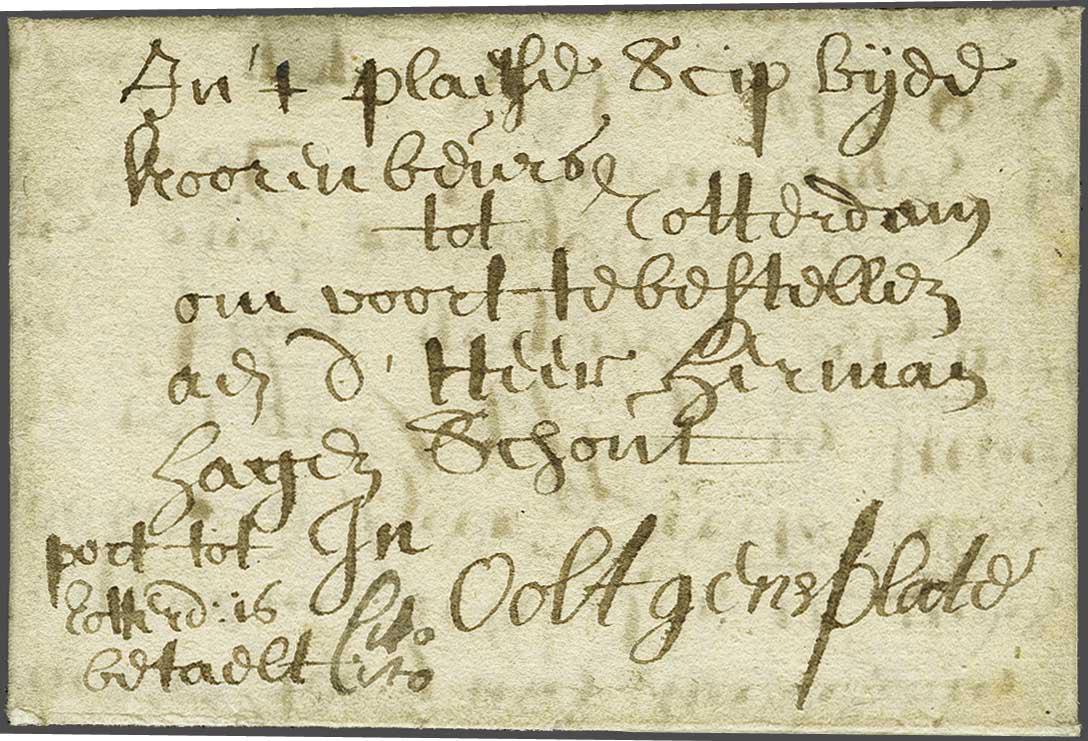 In't plaetse Scip bijde
kooren beurse
tot Rotterdam
om voort te bestellen
aen d' Heer Herman
Hagen Schout
In Ooltgensplate
port tot
Rotterd: is
betaelt
Cito
Cito